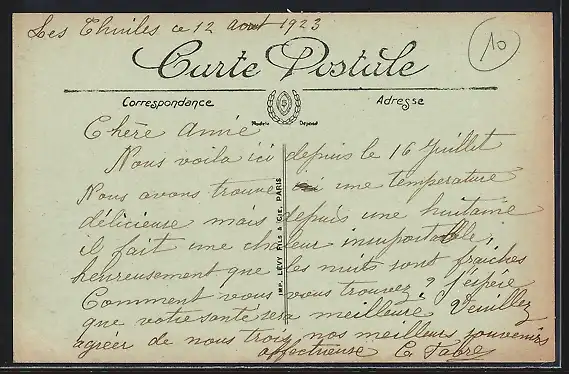 Les Thuiles ce 12 aout 1923
10
Carte Postale
Correspondance
Adresse
Modèle Déposé
Chère Amie
Nous voila ici depuis le 16 Juillet
Nous avons trouvé ici une temperature
délicieuse mais depuis une huitaine
il fait une chaleur insuportable,
heureusement que les nuits sont fraiches
Comment vous vous trouvez ? j'éspére
que votre santé sera meilleure Veuillez
agréer de nous trois nos meilleurs souvenirs
affectueuse C. Fabre
IMP. LÉVY FILS & CIE, PARIS